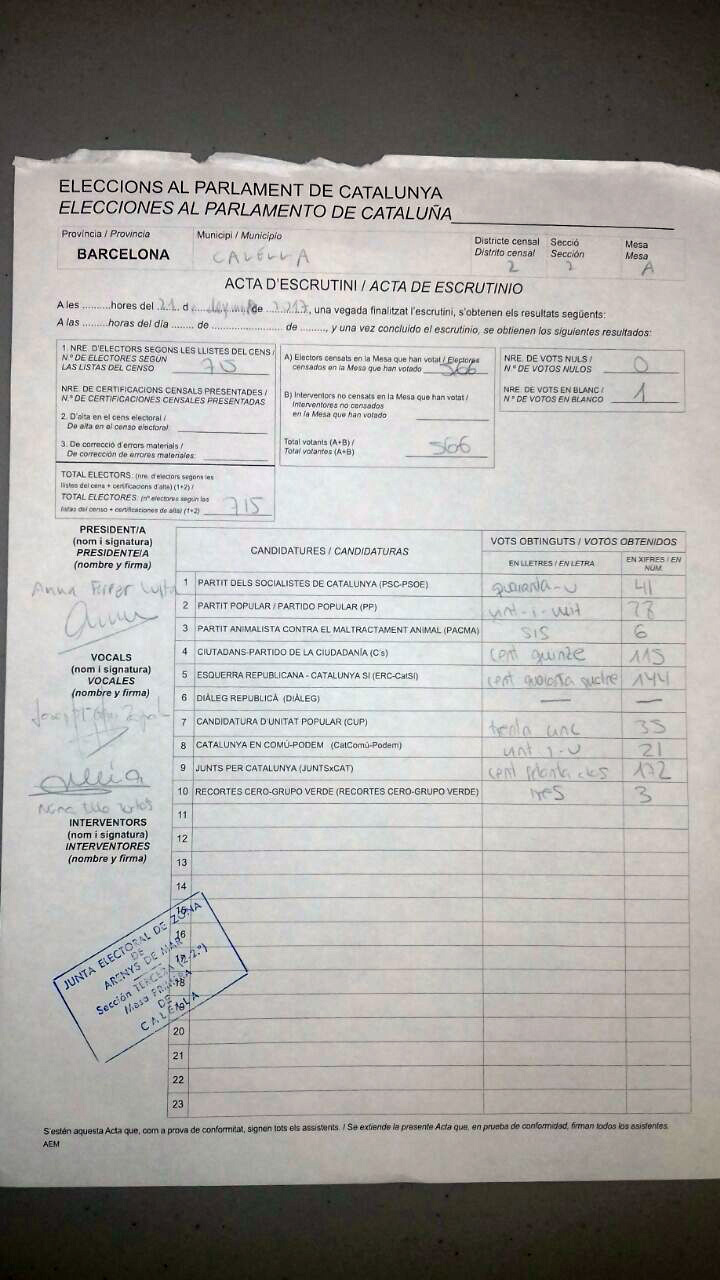 ELECCIONS AL PARLAMENT DE CATALUNYA
ELECCIONES AL PARLAMENTO DE CATALUÑA
Província / Provincia
BARCELONA
Municipi / Municipio
CALELLA
Districte censal
Distrito censal
2
Secció
Sección
2
Mesa
Mesa
A
ACTA D'ESCRUTINI / ACTA DE ESCRUTINIO
A les ..........hores del 21 d de 2017, una vegada finalitzat l'escrutini, s'obtenen els resultats següents:
A las ........horas del día ....... de ........................ de ........, y una vez concluido el escrutinio, se obtienen los siguientes resultados:
1. NRE. D'ELECTORS SEGONS LES LLISTES DEL CENS /
N.º DE ELECTORES SEGÚN
LAS LISTAS DEL CENSO
NRE. DE CERTIFICACIONS CENSALS PRESENTADES /
N.º DE CERTIFICACIONES CENSALES PRESENTADAS
2. D'alta en el cens electoral /
De alta en el censo electoral
3. De correcció d'errors materials /
De corrección de errores materiales:
TOTAL ELECTORS: (nre. d'electors segons les
llistes del cens + certificacions d'alta) (1+2) /
TOTAL ELECTORES: (nº electores según las
listas del censo + certificaciones de alta) (1+2)
715
A) Electors censats en la Mesa que han votat / Electores
censados en la Mesa que han votado
566
B) Interventors no censats en la Mesa que han votat /
Interventores no censados
en la Mesa que han votado
Total votants (A+B) /
Total votantes (A+B)
566
NRE. DE VOTS NULS /
N.º DE VOTOS NULOS
0
NRE. DE VOTS EN BLANC /
N.º DE VOTOS EN BLANCO
1
PRESIDENT/A
(nom i signatura)
PRESIDENTE/A
(nombre y firma)
Anna
VOCALS
(nom i signatura)
VOCALES
(nombre y firma)
INTERVENTORS
(nom i signatura)
INTERVENTORES
(nombre y firma)
CANDIDATURES / CANDIDATURAS
VOTS OBTINGUTS / VOTOS OBTENIDOS
EN LLETRES / EN LETRA
EN XIFRES / EN NÚM.
1 PARTIT DELS SOCIALISTES DE CATALUNYA (PSC-PSOE) quaranta-u 41
2 PARTIT POPULAR / PARTIDO POPULAR (PP) vint-i-vuit 28
3 PARTIT ANIMALISTA CONTRA EL MALTRACTAMENT ANIMAL (PACMA) SIS 6
4 CIUTADANS-PARTIDO DE LA CIUDADANÍA (C's) cent quinze 115
5 ESQUERRA REPUBLICANA - CATALUNYA SÍ (ERC-CatSí) cent quaranta quatre 144
6 DIÀLEG REPUBLICÀ (DIÀLEG) — —
7 CANDIDATURA D'UNITAT POPULAR (CUP) trenta cinc 35
8 CATALUNYA EN COMÚ-PODEM (CatComú-Podem) vint i-u 21
9 JUNTS PER CATALUNYA (JUNTSxCAT) cent setanta dos 172
10 RECORTES CERO-GRUPO VERDE (RECORTES CERO-GRUPO VERDE) tres 3
11
12
13
14
15
16
17
18
19
20
21
22
23
JUNTA ELECTORAL DE ZONA
DE
ARENYS DE MAR
Sección TERCERA (2-2.ª)
Mesa PRIMERA
DE
CALELLA
S'estén aquesta Acta que, com a prova de conformitat, signen tots els assistents. / Se extiende la presente Acta que, en prueba de conformidad, firman todos los asistentes.
AEM